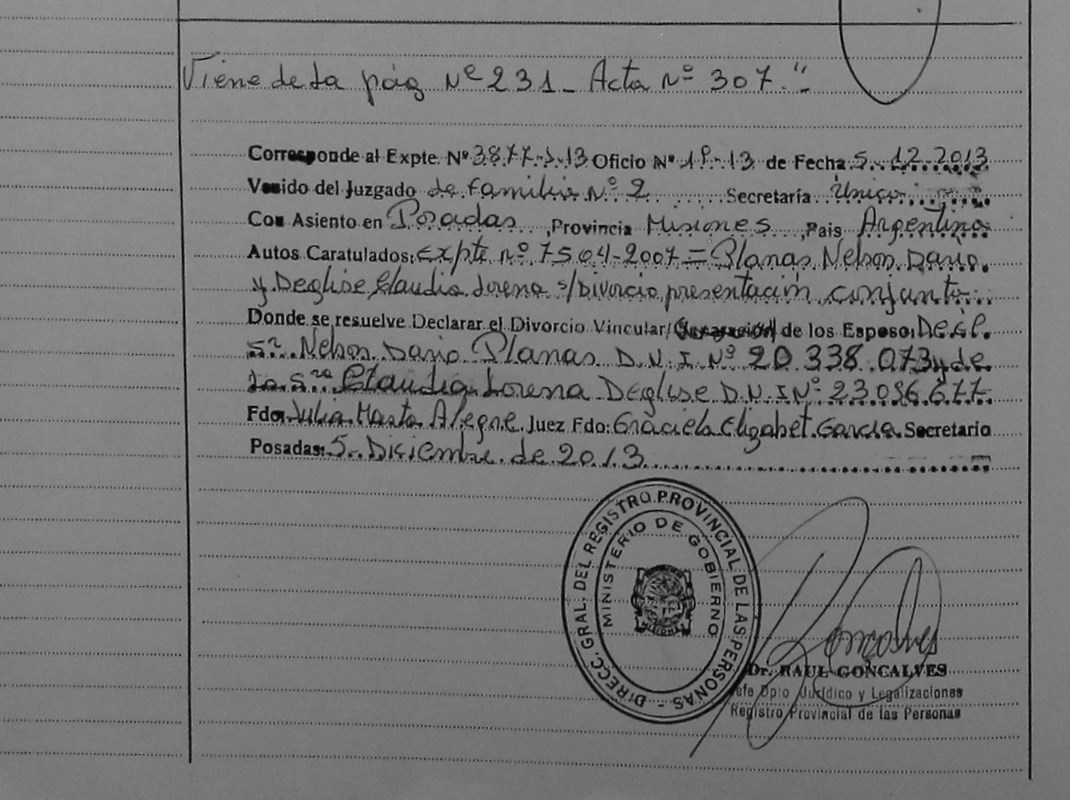 Viene de la pág Nº 231 - Acta Nº 307."
Corresponde al Expte. Nº 3877-J-13 Oficio Nº 1º-13 de Fecha 5.12.2013
Venido del Juzgado de Familia Nº 2 Secretaría Única
Con Asiento en Posadas, Provincia Misiones, Pais Argentina
Autos Caratulados: Expte nº 7504-2007 = Planas Nelson Dario
y Deglise Claudia Lorena s/Divorcio presentación conjunta
Donde se resuelve Declarar el Divorcio Vincular/ de los Esposo: De él
Sr. Nelson Dario Planas D.N.I. Nº 20.338.073 y de
la Sra Claudia Lorena Deglise D.N.I Nº 23.086.677.
Fdo. Julia Marta Alegre Juez Fdo: Graciela Elizabet Garcia Secretario
Posadas: 5 Diciembre de 2013
DIRECC. GRAL. DEL REGISTRO PROVINCIAL DE LAS PERSONAS -
MINISTERIO DE GOBIERNO
MISIONES
Dr. RAUL GONCALVES
Jefe Dpto Jurídico y Legalizaciones
Registro Provincial de las Personas